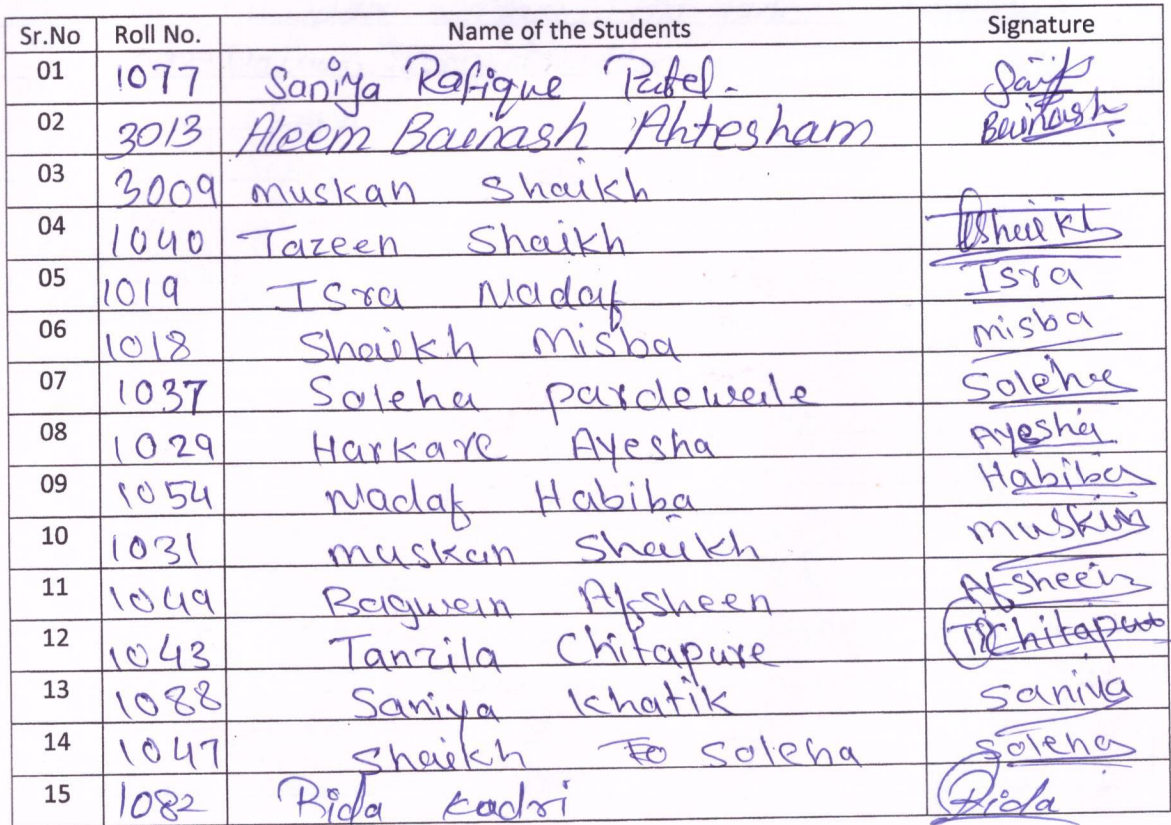 Sr.No Roll No. Name of the Students Signature
01 1077 Saniya Rafique Patel.
02 3013 Aleem Bainash Ahtesham Bainash
03 3009 muskan Shaikh
04 1040 Tazeen Shaikh TShaikh
05 1019 Isra Nadaf Isra
06 1018 Shaikh Misba misba
07 1037 Saleha pardewale Saleha
08 1029 Harkare Ayesha Ayesha
09 1054 Nadaf Habiba Habiba
10 1031 muskan Shaikh muskan
11 1049 Bagwan Afsheen Afsheen
12 1043 Tanzila Chitapure Chitapure
13 1088 Saniya Khatik Saniya
14 1047 Shaikh Soleha Soleha
15 1082 Rida Kadri Rida